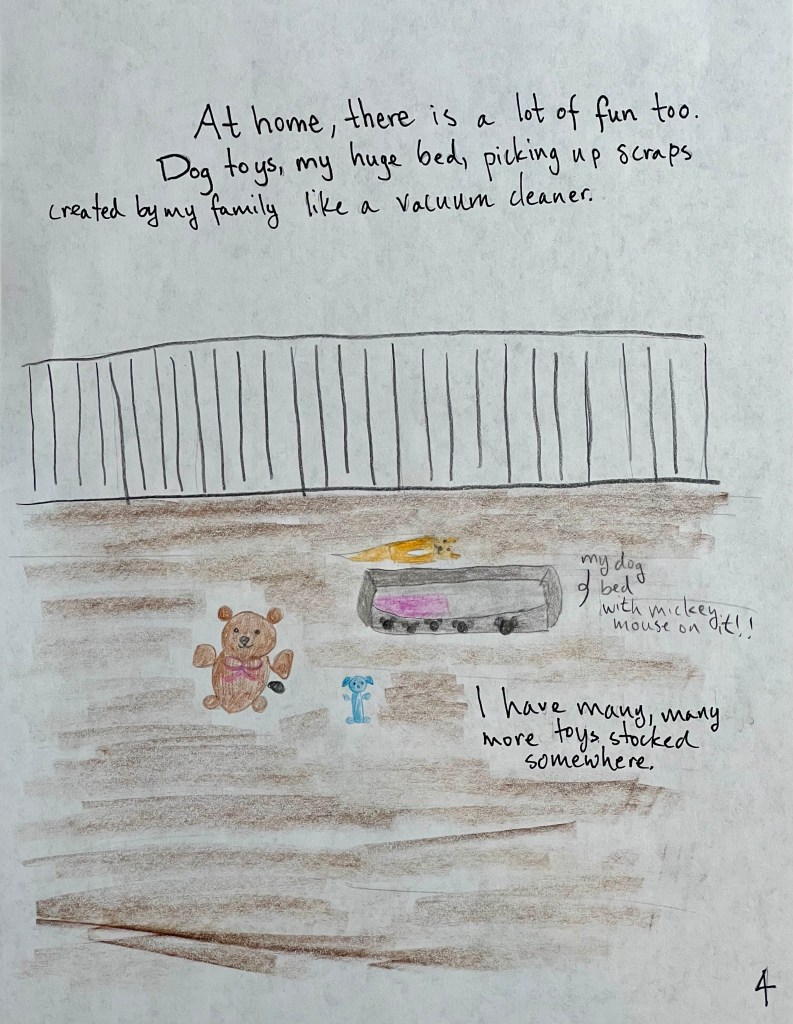 At home, there is a lot of fun too.
Dog toys, my huge bed, picking up scraps
created by my family like a vacuum cleaner.
my dog
bed
with mickey
mouse on it!!
I have many, many
more toys stocked
somewhere.
4